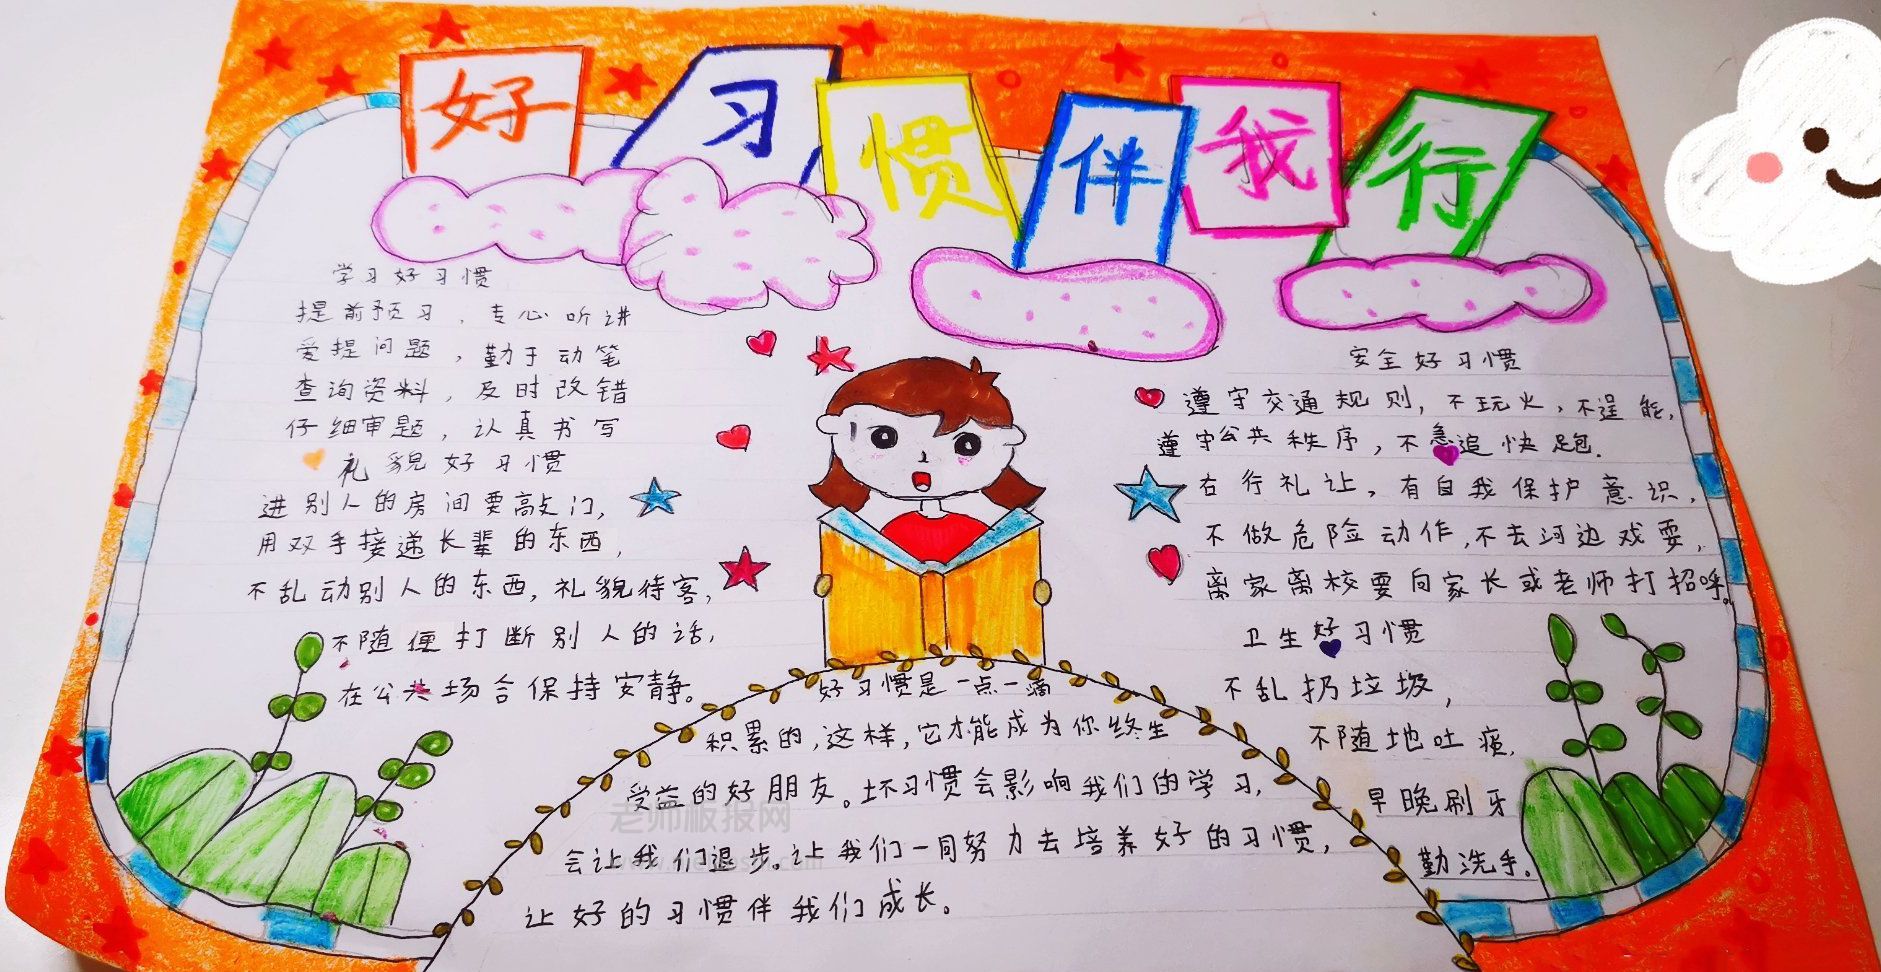 好习惯伴我行
学习好习惯
提前预习，专心听讲
爱提问题，勤于动笔
查询资料，及时改错
仔细审题，认真书写
礼貌好习惯
进别人的房间要敲门，
用双手接递长辈的东西，
不乱动别人的东西，礼貌待客，
不随便打断别人的话，
在公共场合保持安静。
安全好习惯
遵守交通规则，不玩火，不逞能，
遵守公共秩序，不急追快跑.
右行礼让，有自我保护意识，
不做危险动作，不去河边戏耍，
离家离校要向家长或老师打招呼。
卫生好习惯
不乱扔垃圾，
不随地吐痰，
早晚刷牙
勤洗手。
好习惯是一点一滴
积累的，这样，它才能成为你终生
受益的好朋友。坏习惯会影响我们的学习，
会让我们退步。让我们一同努力去培养好的习惯，
让好的习惯伴我们成长。
老师板报网